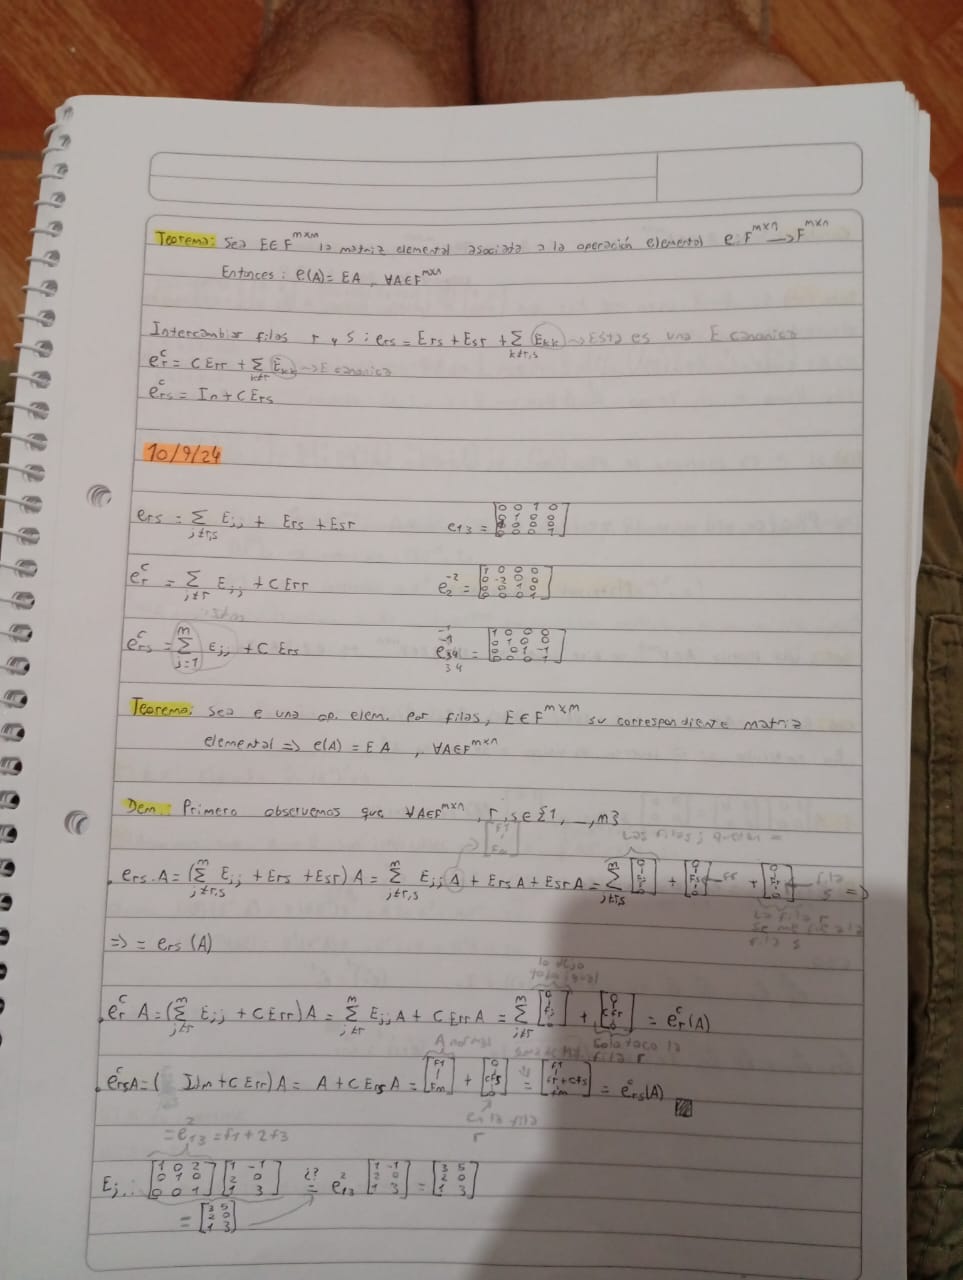 Teorema: Sea E∈F^{m×m} la matriz elemental asociada a la operación elemental e: F^{m×n} → F^{m×n}
Entonces: e(A) = EA, ∀A∈F^{m×n}
Intercambiar filas r y s: e_{rs} = E_{rs} + E_{sr} + Σ_{k≠r,s} E_{kk} → Esta es una E canonica
e_r^c = C E_{rr} + Σ_{k≠r} E_{kk} → E canonica
e_{rs}^c = In + C E_{rs}
10/9/24
e_{rs} = Σ_{j≠r,s} E_{jj} + E_{rs} + E_{sr} e_{13} = [0 0 1 0; 0 1 0 0; 1 0 0 0; 0 0 0 1]
e_r^c = Σ_{j≠r} E_{jj} + C E_{rr} e_2^{-2} = [1 0 0 0; 0 -2 0 0; 0 0 1 0; 0 0 0 1]
e_{rs}^c = Σ_{j=1}^m E_{jj} + C E_{rs} e_{34}^{-1} = [1 0 0 0; 0 1 0 0; 0 0 1 -1; 0 0 0 1]
3 4
Teorema: Sea e una op. elem. por filas, E∈F^{m×m} su correspondiente matriz
elemental => e(A) = EA, ∀A∈F^{m×n}
Dem: Primero observemos que ∀A∈F^{m×n}, r,s∈{1, _, m}
[F1 | Fm] Las filas j quedan =
e_{rs}.A = (Σ_{j≠r,s}^m E_{jj} + E_{rs} + E_{sr}) A = Σ_{j≠r,s}^m E_{jj} A + E_{rs} A + E_{sr} A = Σ_{j≠r,s}^m [0 Fj 0] + [0 Fs 0] + [0 Fr 0] ← fila s =>
La fila r
se me fue a la
fila s
=> = e_{rs}(A)
lo dejo
todo igual
e_r^c A = (Σ_{j≠r}^m E_{jj} + C E_{rr}) A = Σ_{j≠r}^m E_{jj} A + C E_{rr} A = Σ_{j≠r}^m [0 fj 0] + [0 cfr 0] = e_r^c(A)
Solo toco la
fila r
A normal
e_{rs}^c A = (I_m + C E_{rr}) A = A + C E_{rs} A = [F1 | Fm] + [0 cfs 0] = [F1 fr+cfs fm] = e_{rs}^c(A)
en la fila
r
= e_{13}^2 = f1+2f3
Ej.: [1 0 2; 0 1 0; 0 0 1] [1 -1; 2 0; 1 3] ¿?= e_{13}^2 [1 -1; 2 0; 1 3] = [3 5; 2 0; 1 3]
= [3 5; 2 0; 1 3]